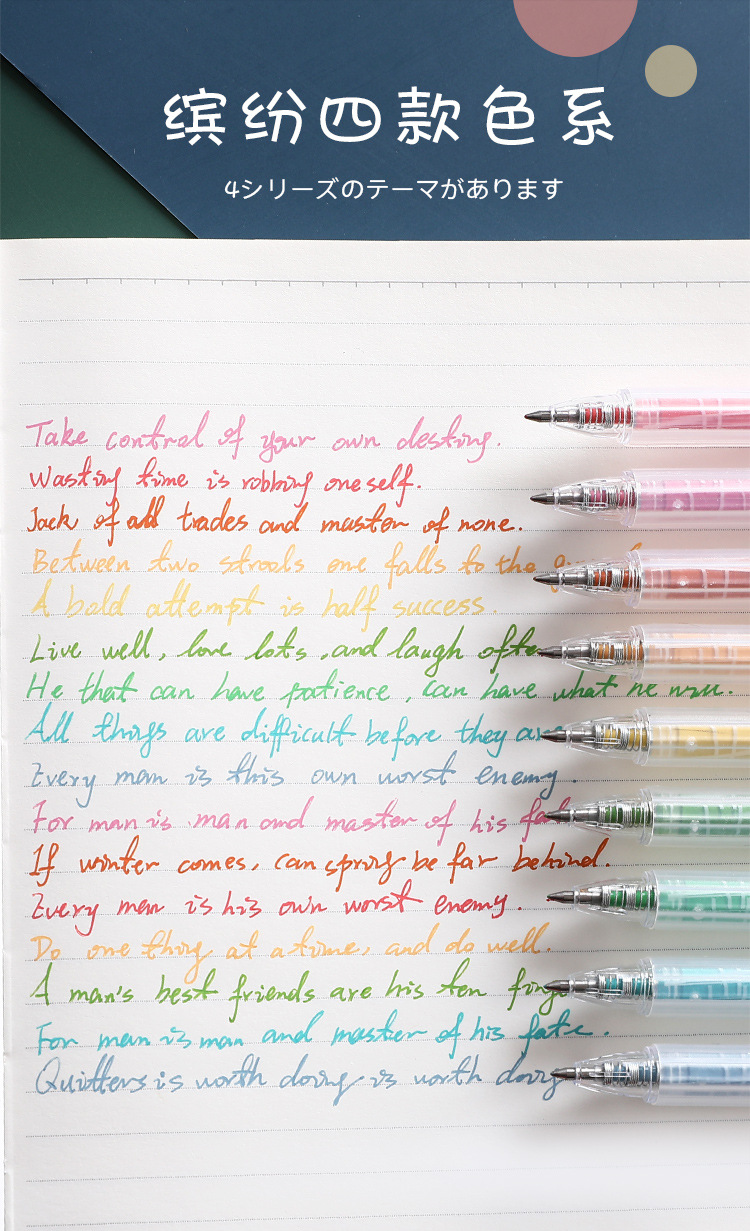 缤纷四款色系
4シリーズのテーマがあります
Take control of your own desting.
Wasting time is robbing oneself.
Jack of all trades and master of none.
Between two strools one falls to the
A bold attempt is half success.
Live well, love lots, and laugh ofte
He that can have patience, can have what he
All things are difficult before they are
Every man is this own worst enemy.
For man is man and master of his
If winter comes, can spring be far behind.
Every man is his own worst enemy.
Do one thing at a time, and do well.
A man's best friends are his ten
For man is man and master of his fate.
Quitters is worth doing is worth doing